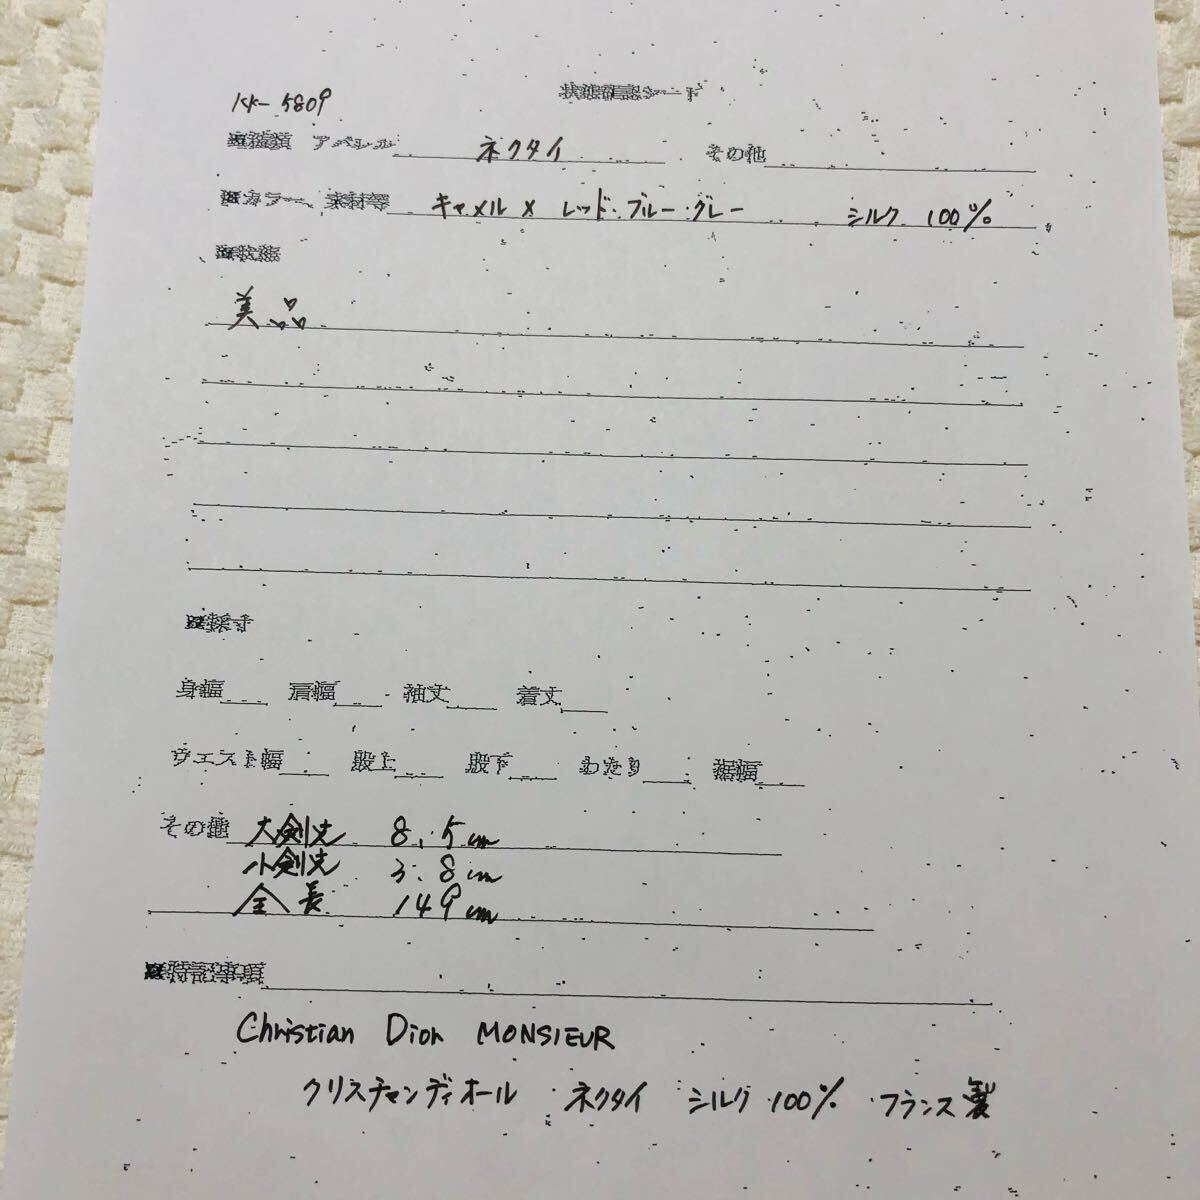 状態確認シート
KK-5809
■種類 アパレル ネクタイ その他
■カラー、素材等 キャメル×レッド・ブルー・グレー シルク 100%
■状態
美品
■採寸
身幅 肩幅 袖丈 着丈
ウエスト幅 股上 股下 わたり 裾幅
その他 大剣丈 8.5cm
小剣丈 3.8cm
全長 149cm
■特記事項
Christian Dior MONSIEUR
クリスチャンディオール ネクタイ シルク 100% フランス製